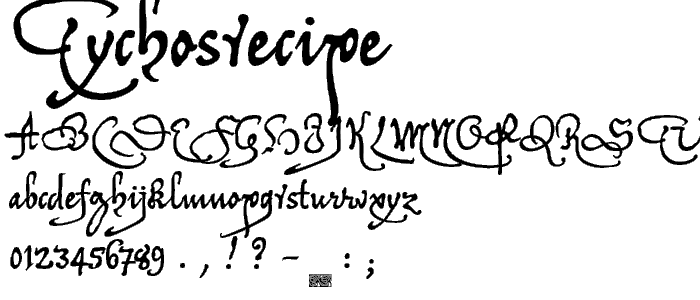 Tychosrecipe
ABCDEFGHIJKLMNOPQRSTU
abcdefghijklmnopqrsturrvxyz
0123456789 . , ! ? - : ;